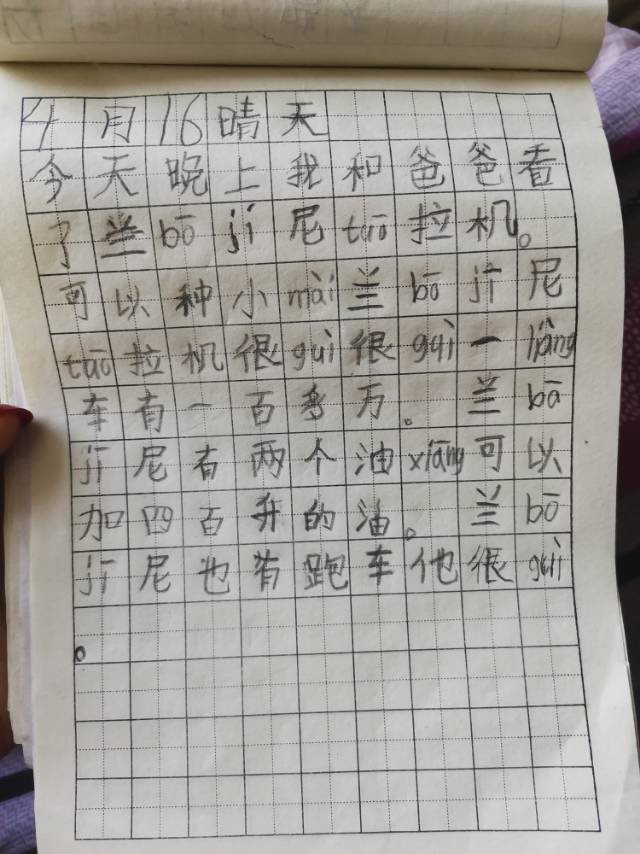 4月16晴天
今天晚上我和爸爸看
了兰bō jí尼tuō拉机。
可以种小mài兰bō jī尼
tuō拉机很guì很guì一liàng
车有一百多万。兰bō
jī尼有两个油xiāng可以
加四百升的油。兰bō
jī尼也有跑车他很guì
。